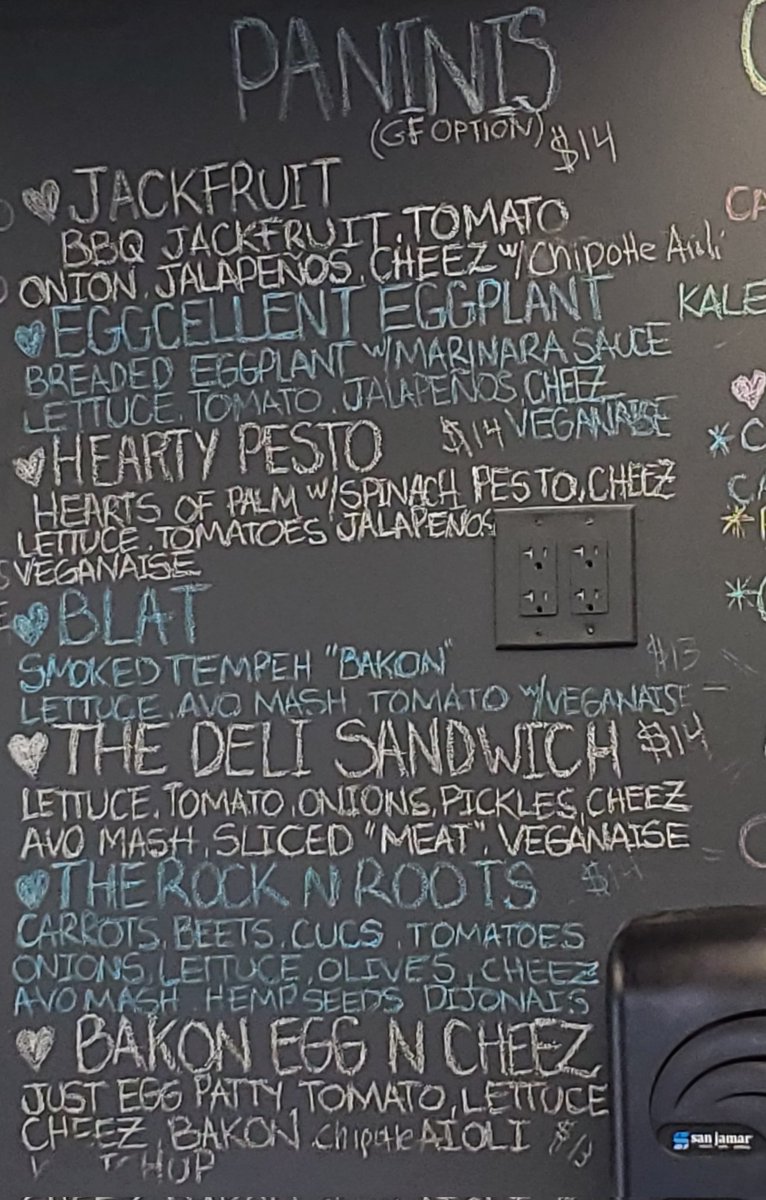 PANINIS
(GF OPTION) $14
JACKFRUIT
BBQ JACKFRUIT, TOMATO
ONION, JALAPEÑOS, CHEEZ w/ Chipotle Aioli
EGGCELLENT EGGPLANT
BREADED EGGPLANT W/MARINARA SAUCE
LETTUCE, TOMATO, JALAPEÑOS, CHEEZ
$14 VEGANAISE
HEARTY PESTO
HEARTS OF PALM W/SPINACH PESTO, CHEEZ
LETTUCE, TOMATOES JALAPEÑOS
VEGANAISE
BLAT
SMOKED TEMPEH "BAKON"
$13
LETTUCE, AVO MASH, TOMATO W/VEGANAISE
THE DELI SANDWICH $14
LETTUCE, TOMATO, ONIONS, PICKLES, CHEEZ
AVO MASH, SLICED "MEAT", VEGANAISE
THE ROCK N ROOTS $14
CARROTS, BEETS, CUCS, TOMATOES
ONIONS, LETTUCE, OLIVES, CHEEZ
AVO MASH, HEMP SEEDS DIJONAIS
BAKON EGG N CHEEZ
JUST EGG PATTY, TOMATO, LETTUCE
CHEEZ, BAKON, chipotle AIOLI $13
KALE
san jamar